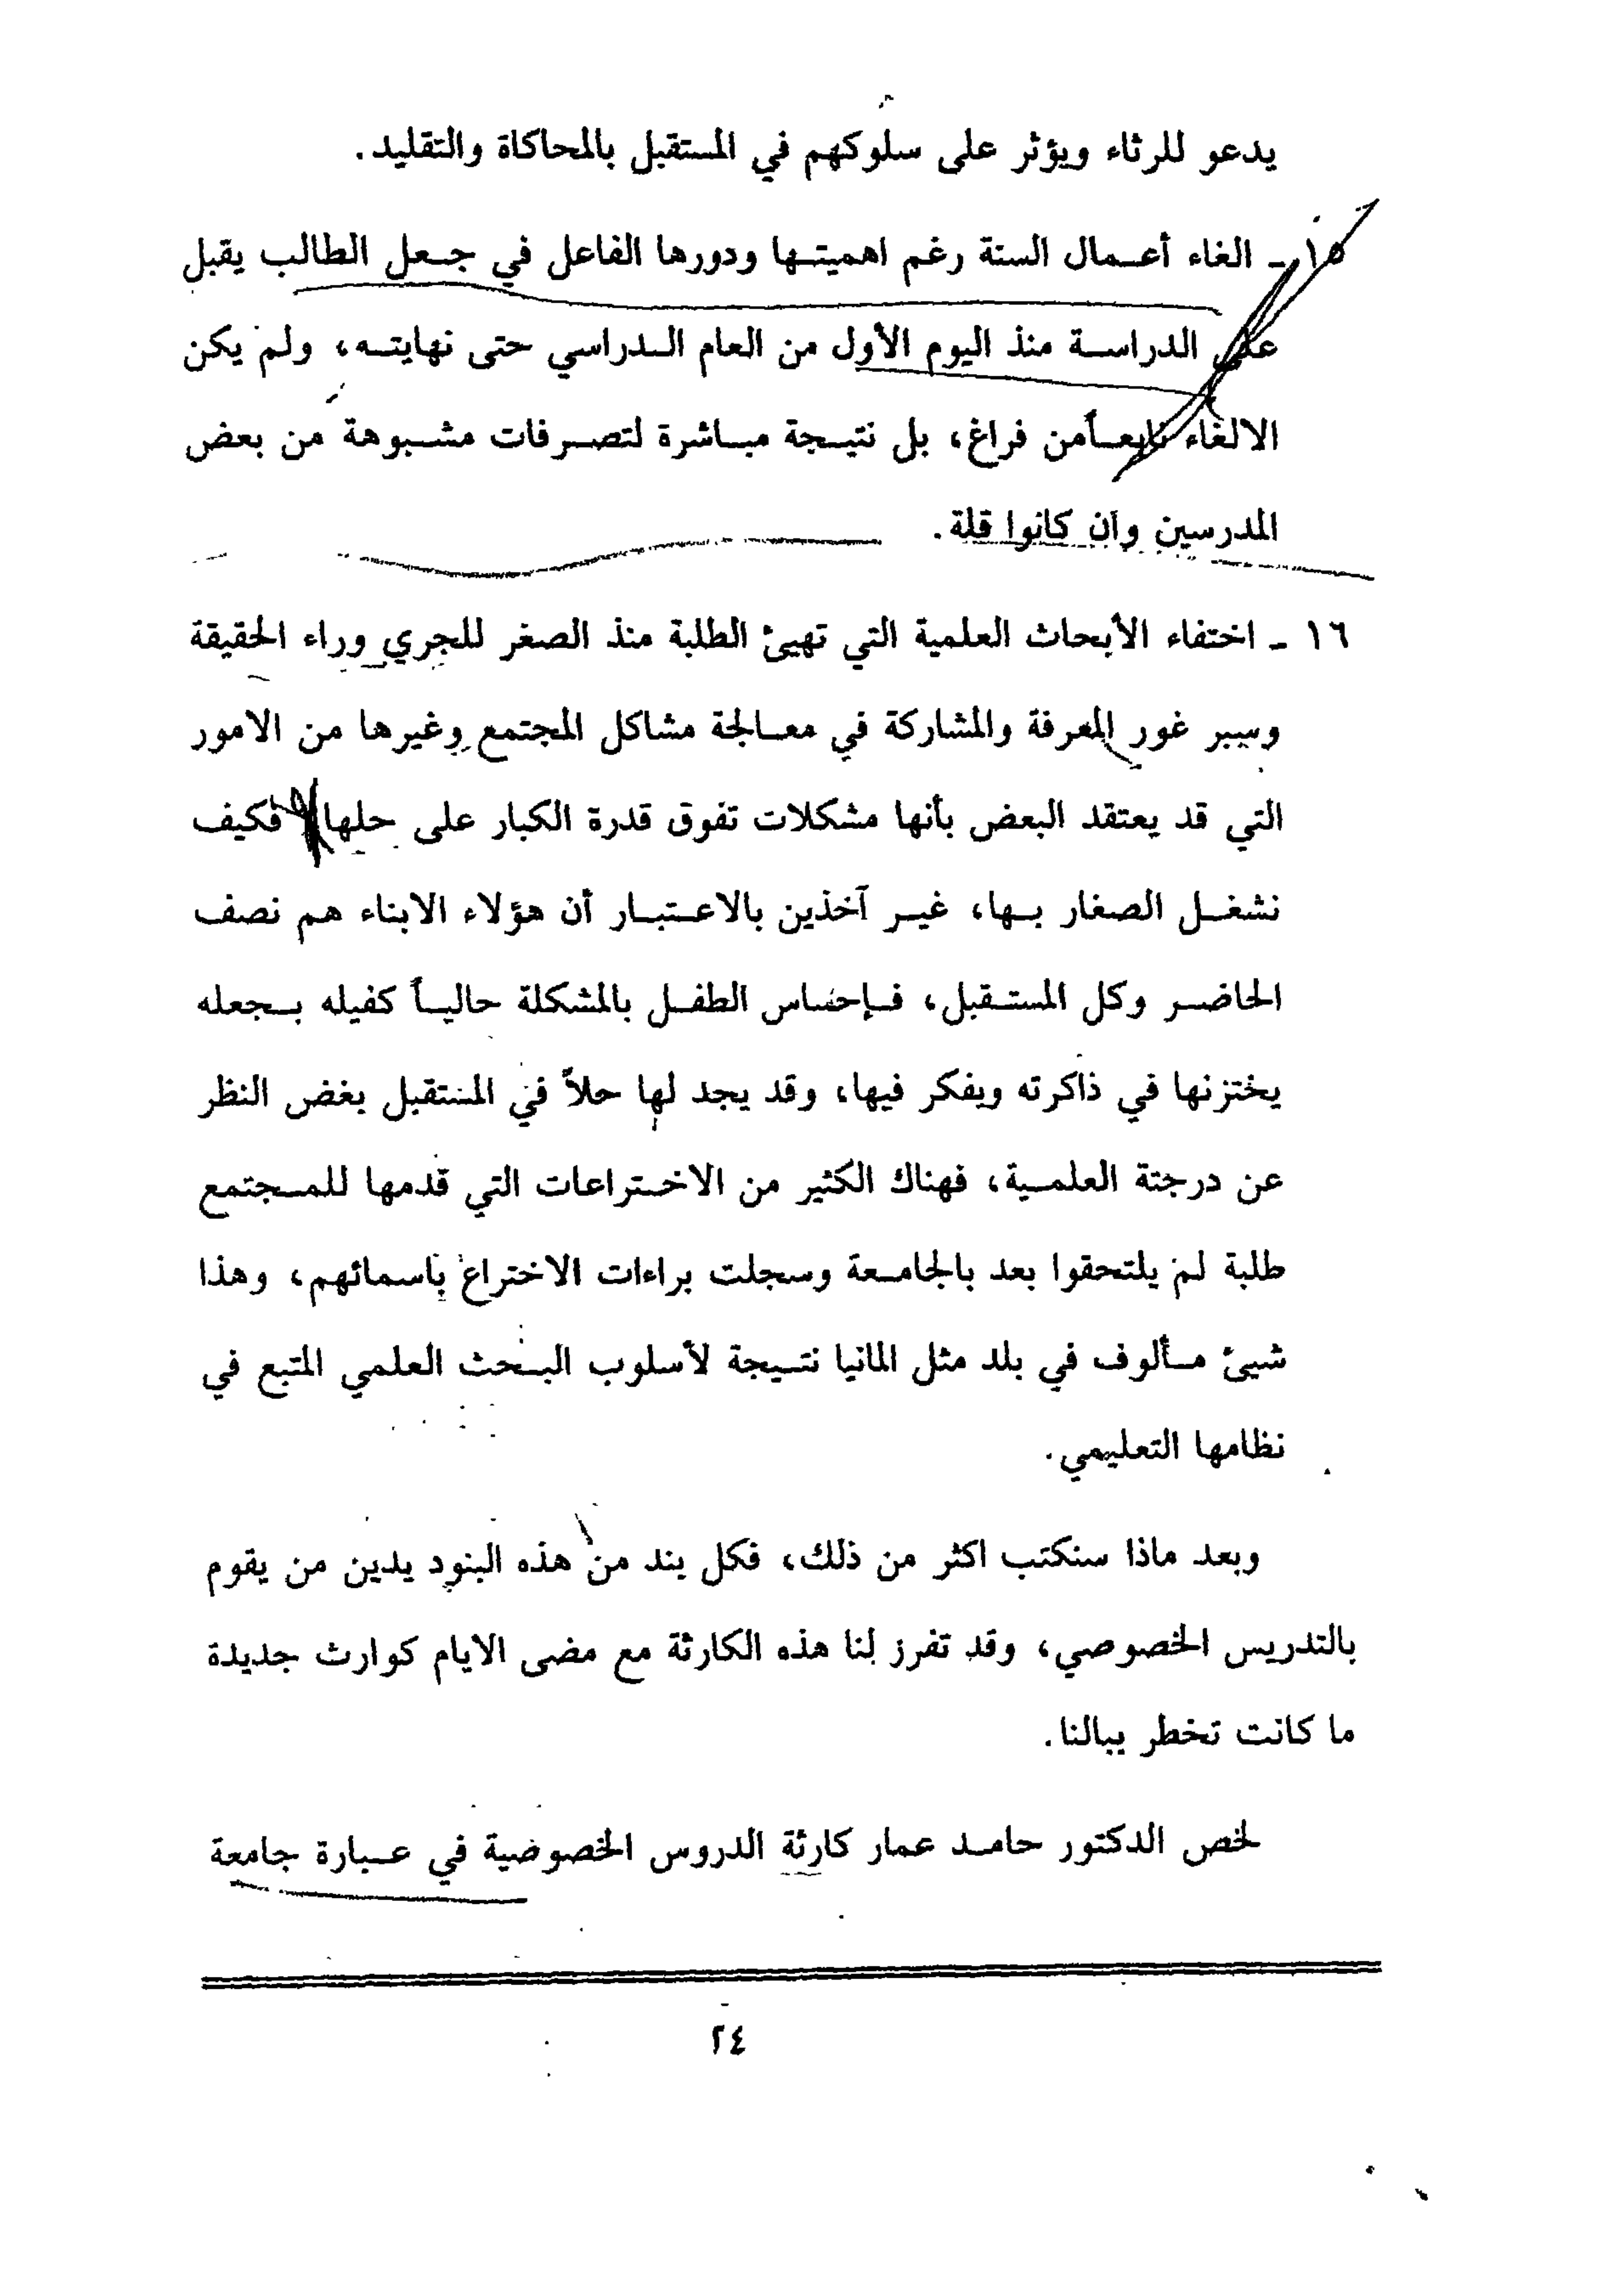 يدعو للرثاء ويؤثر على سلوكهم في المستقبل بالمحاكاة والتقليد.
١٥ ـ الغاء أعمال السنة رغم اهميتها ودورها الفاعل في جعل الطالب يقبل
على الدراسة منذ اليوم الأول من العام الدراسي حتى نهايته، ولم يكن
الالغاء نابعاً من فراغ، بل نتيجة مباشرة لتصرفات مشبوهة من بعض
المدرسين وان كانوا قلة.
١٦ ـ اختفاء الأبحاث العلمية التي تهيئ الطلبة منذ الصغر للجري وراء الحقيقة
وسبر غور المعرفة والمشاركة في معالجة مشاكل المجتمع وغيرها من الامور
التي قد يعتقد البعض بأنها مشكلات تفوق قدرة الكبار على حلها فكيف
نشغل الصغار بها، غير آخذين بالاعتبار أن هؤلاء الابناء هم نصف
الحاضر وكل المستقبل، فإحساس الطفل بالمشكلة حالياً كفيله بجعله
يختزنها في ذاكرته ويفكر فيها، وقد يجد لها حلاً في المستقبل بغض النظر
عن درجتة العلمية، فهناك الكثير من الاختراعات التي قدمها للمجتمع
طلبة لم يلتحقوا بعد بالجامعة وسجلت براءات الاختراع باسمائهم، وهذا
شيئ مألوف في بلد مثل المانيا نتيجة لأسلوب البحث العلمي المتبع في
نظامها التعليمي.
وبعد ماذا سنكتب اكثر من ذلك، فكل بند من هذه البنود يدين من يقوم
بالتدريس الخصوصي، وقد تفرز لنا هذه الكارثة مع مضى الايام كوارث جديدة
ما كانت تخطر ببالنا.
لخص الدكتور حامد عمار كارثة الدروس الخصوصية في عبارة جامعة
٢٤